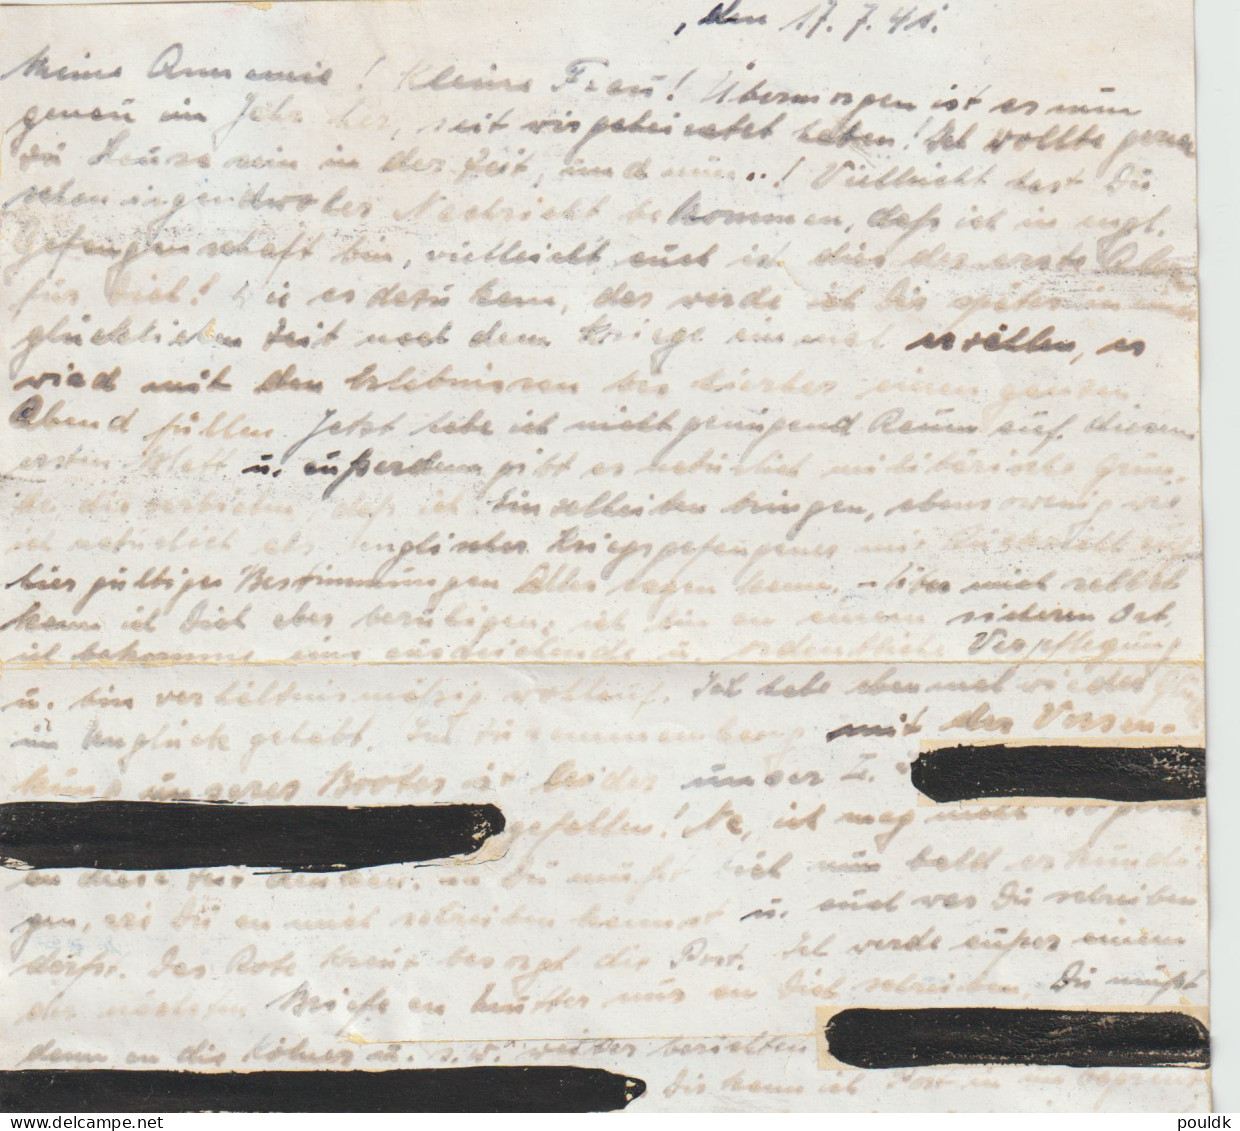 , den 17. 7. 41.
Meine Annemie! Kleine Frau! Übermorgen ist es nun
genau ein Jahr her, seit wir geheiratet haben! Ich wollte gerne
zu Hause sein in der Zeit, und nun..! Vielleicht hast Du
schon irgendwoher Nachricht bekommen, daß ich in engl.
Gefangenschaft bin, vielleicht auch ist dies das erste
für Dich! Wie es dazu kam, das werde ich Dir später in
glücklichen Zeit nach dem Kriege einmal erzählen, es
wird mit den Erlebnissen bis hierher einen ganzen
Abend füllen. Jetzt habe ich nicht genügend Raum auf diesem
ersten Blatt u. außerdem gibt es natürlich militärische Grün-
de die verbieten, daß ich Einzelheiten bringen, ebensowenig wie
ich natürlich als englischer Kriegsgefangener mit Rücksicht auf
hier gültige Bestimmungen Alles sagen kann. - Über mich selbst
kann ich Dich aber beruhigen: ich bin an einem sicheren Ort,
ich bekomme eine ausreichende u. ordentliche Verpflegung
u. bin verhältnismäßig wohlauf. Ich habe eben mal wieder Glück
im Unglück gehabt. Im Zusammenhang mit der Versen-
kung unseres Bootes ist leider unser I.
gefallen! Ne, ich mag nicht
an diese Zeit denken. Du mußt Dich nun bald erkundi-
gen, wie Du an mich schreiben kannst u. auch was Du schreiben
darfst. Das Rote Kreuz besorgt die Post. Ich werde außer einem
der nächsten Briefe an Mutter nur an Dich schreiben. Du mußt
dann an die Kölner u. s. w. weiter berichten
Dir kann ich Post in